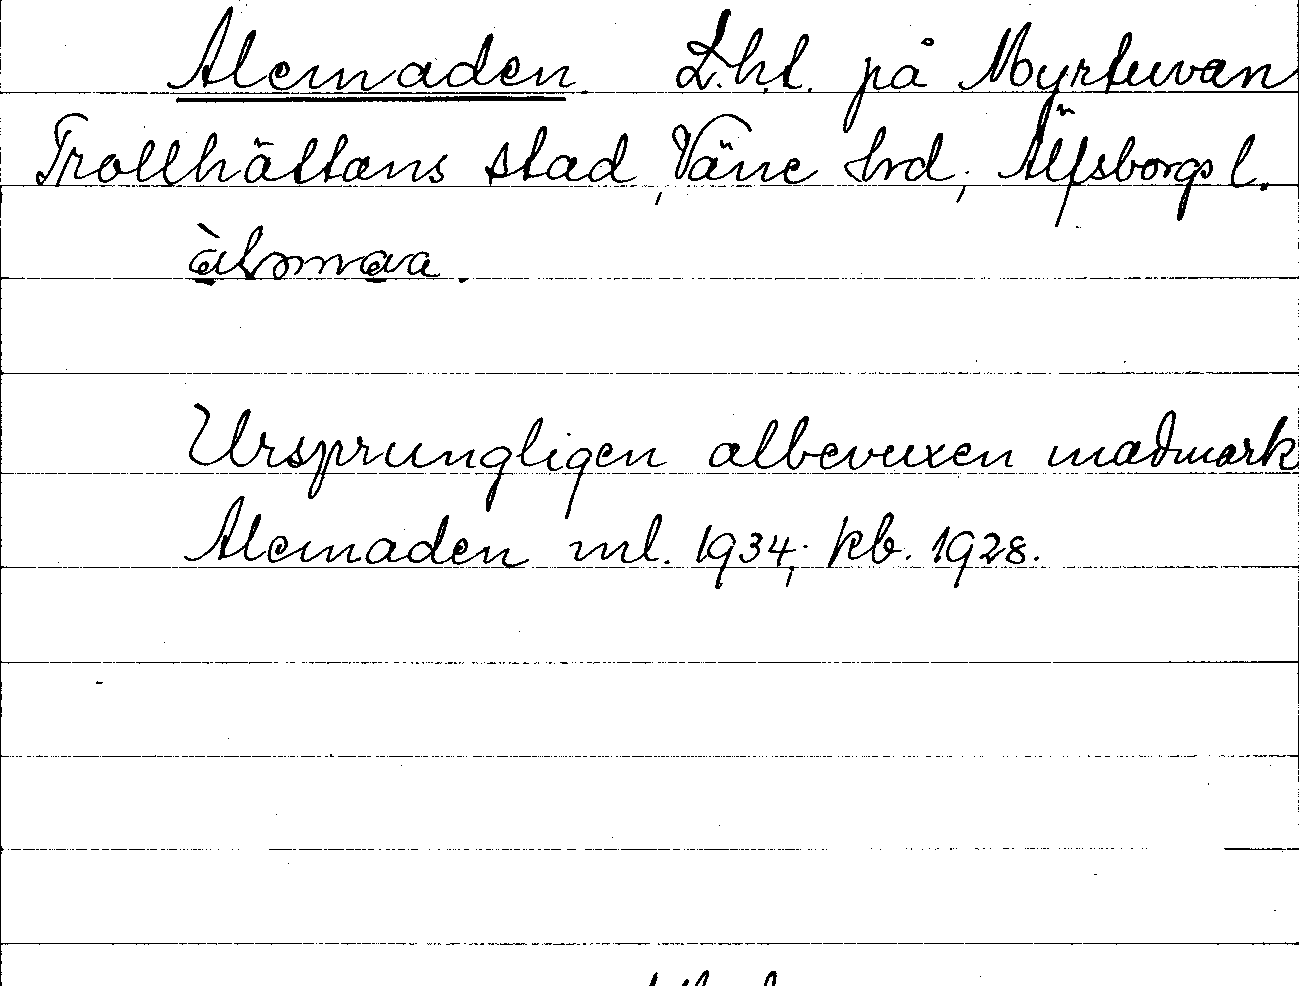 Alemaden. L.h.t. på Myrtuvan
Trollhättans stad, Väne hrd; Älfsborgs l.
Ursprungligen albevuxen madmark
Alemaden ml. 1934; kb. 1928.